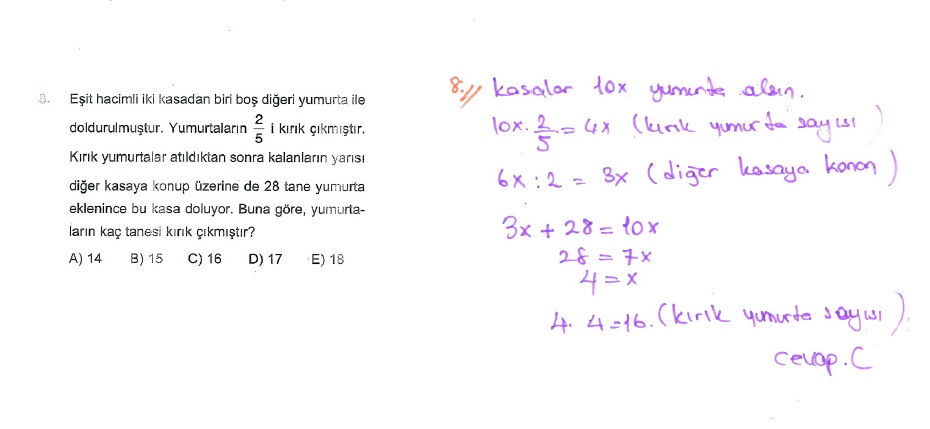 8. Eşit hacimli iki kasadan biri boş diğeri yumurta ile
doldurulmuştur. Yumurtaların 2/5 i kırık çıkmıştır.
Kırık yumurtalar atıldıktan sonra kalanların yarısı
diğer kasaya konup üzerine de 28 tane yumurta
eklenince bu kasa doluyor. Buna göre, yumurta-
ların kaç tanesi kırık çıkmıştır?
A) 14 B) 15 C) 16 D) 17 E) 18
8.// kasalar 10x yumurta alsın.
10x. 2/5 = 4x (kırık yumurta sayısı)
6x : 2 = 3x (diğer kasaya konan)
3x + 28 = 10x
28 = 7x
4 = x
4. 4 = 16. (kırık yumurta sayısı).
cevap. C